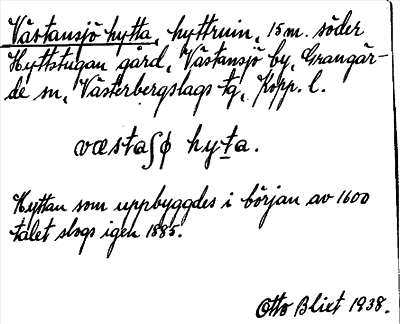 Västansjö hytta, hyttruin, 15 m. söder
Hyttstugan gård, Västansjö by, Grangär-
de sn, Västerbergslags tg, Kopp. l.
væstaʃø hyt̲a.
Hyttan som uppbyggdes i början av 1600
talet slogs igen 1885.
Otto Blixt 1938.